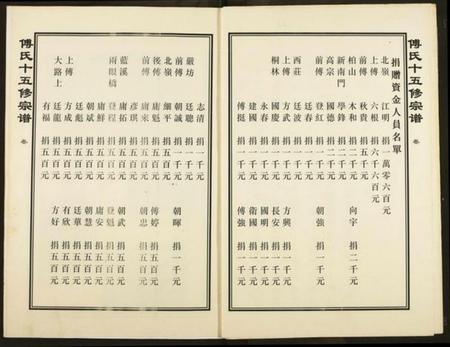 傅氏十五修宗谱
卷
捐贈資金人員名單
北嶺 江明 捐一萬零六百元
上傅 六根 捐六千六百元
前傅 秋貴 捐五千元
柏山 本和 捐二千元 向宇 捐二千元
新南門 學鋒 捐二千元
高宗 國德 捐二千元
前傅 登紅 捐一千元 朝強 捐一千元
廷春 捐一千元
西莊 廷波 捐一千元
上傅 方武 捐一千元 方興 捐一千元
桐林 永春 捐一千元 長安 捐一千元
建慶 捐一千元 國明 捐一千元
國 捐一千元 衛國 捐一千元
傅挺 捐一千元 傅強 捐一千元
志清 捐一千元
嚴坊 廷聰 捐一千元 朝暉 捐一千元
前傅 朝誠 捐一千元
北嶺 細平 捐五百元 傅婷 捐五百元
後傅 庸魁 捐五百元
前傅 庸來 捐五百元 朝忠 捐五百元
彦琪 捐五百元
藍溪 庸拓 捐五百元 朝武 捐五百元
兩眼橋 登程 捐五百元 登魁 捐五百元
庸鮮 捐五百元 庸安 捐五百元
朝斌 捐五百元 朝慧 捐五百元
廷彪 捐五百元 廷華 捐五百元
上傅 方成 捐五百元 有欣 捐五百元
大路上 廷龍 捐五百元 方好 捐五百元
有福 捐五百元
傅氏十五修宗谱
卷